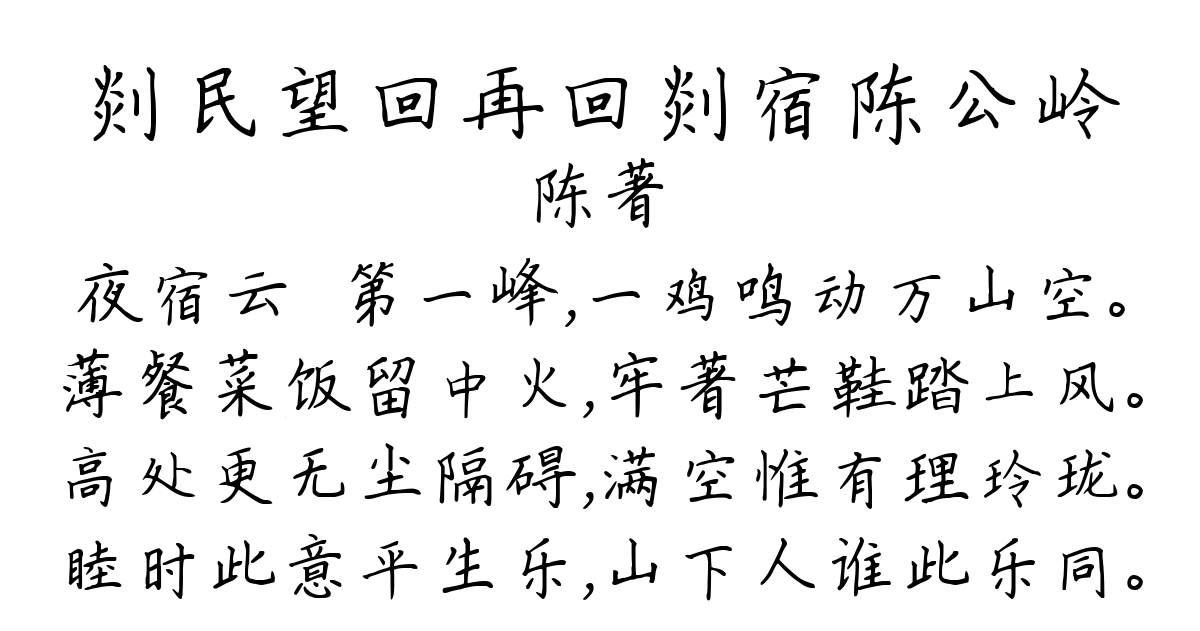 剡民望回再回剡宿陈公岭
陈著
夜宿云 第一峰,一鸡鸣动万山空。
薄餐菜饭留中火,牢著芒鞋踏上风。
高处更无尘隔碍,满空惟有理玲珑。
睦时此意平生乐,山下人谁此乐同。